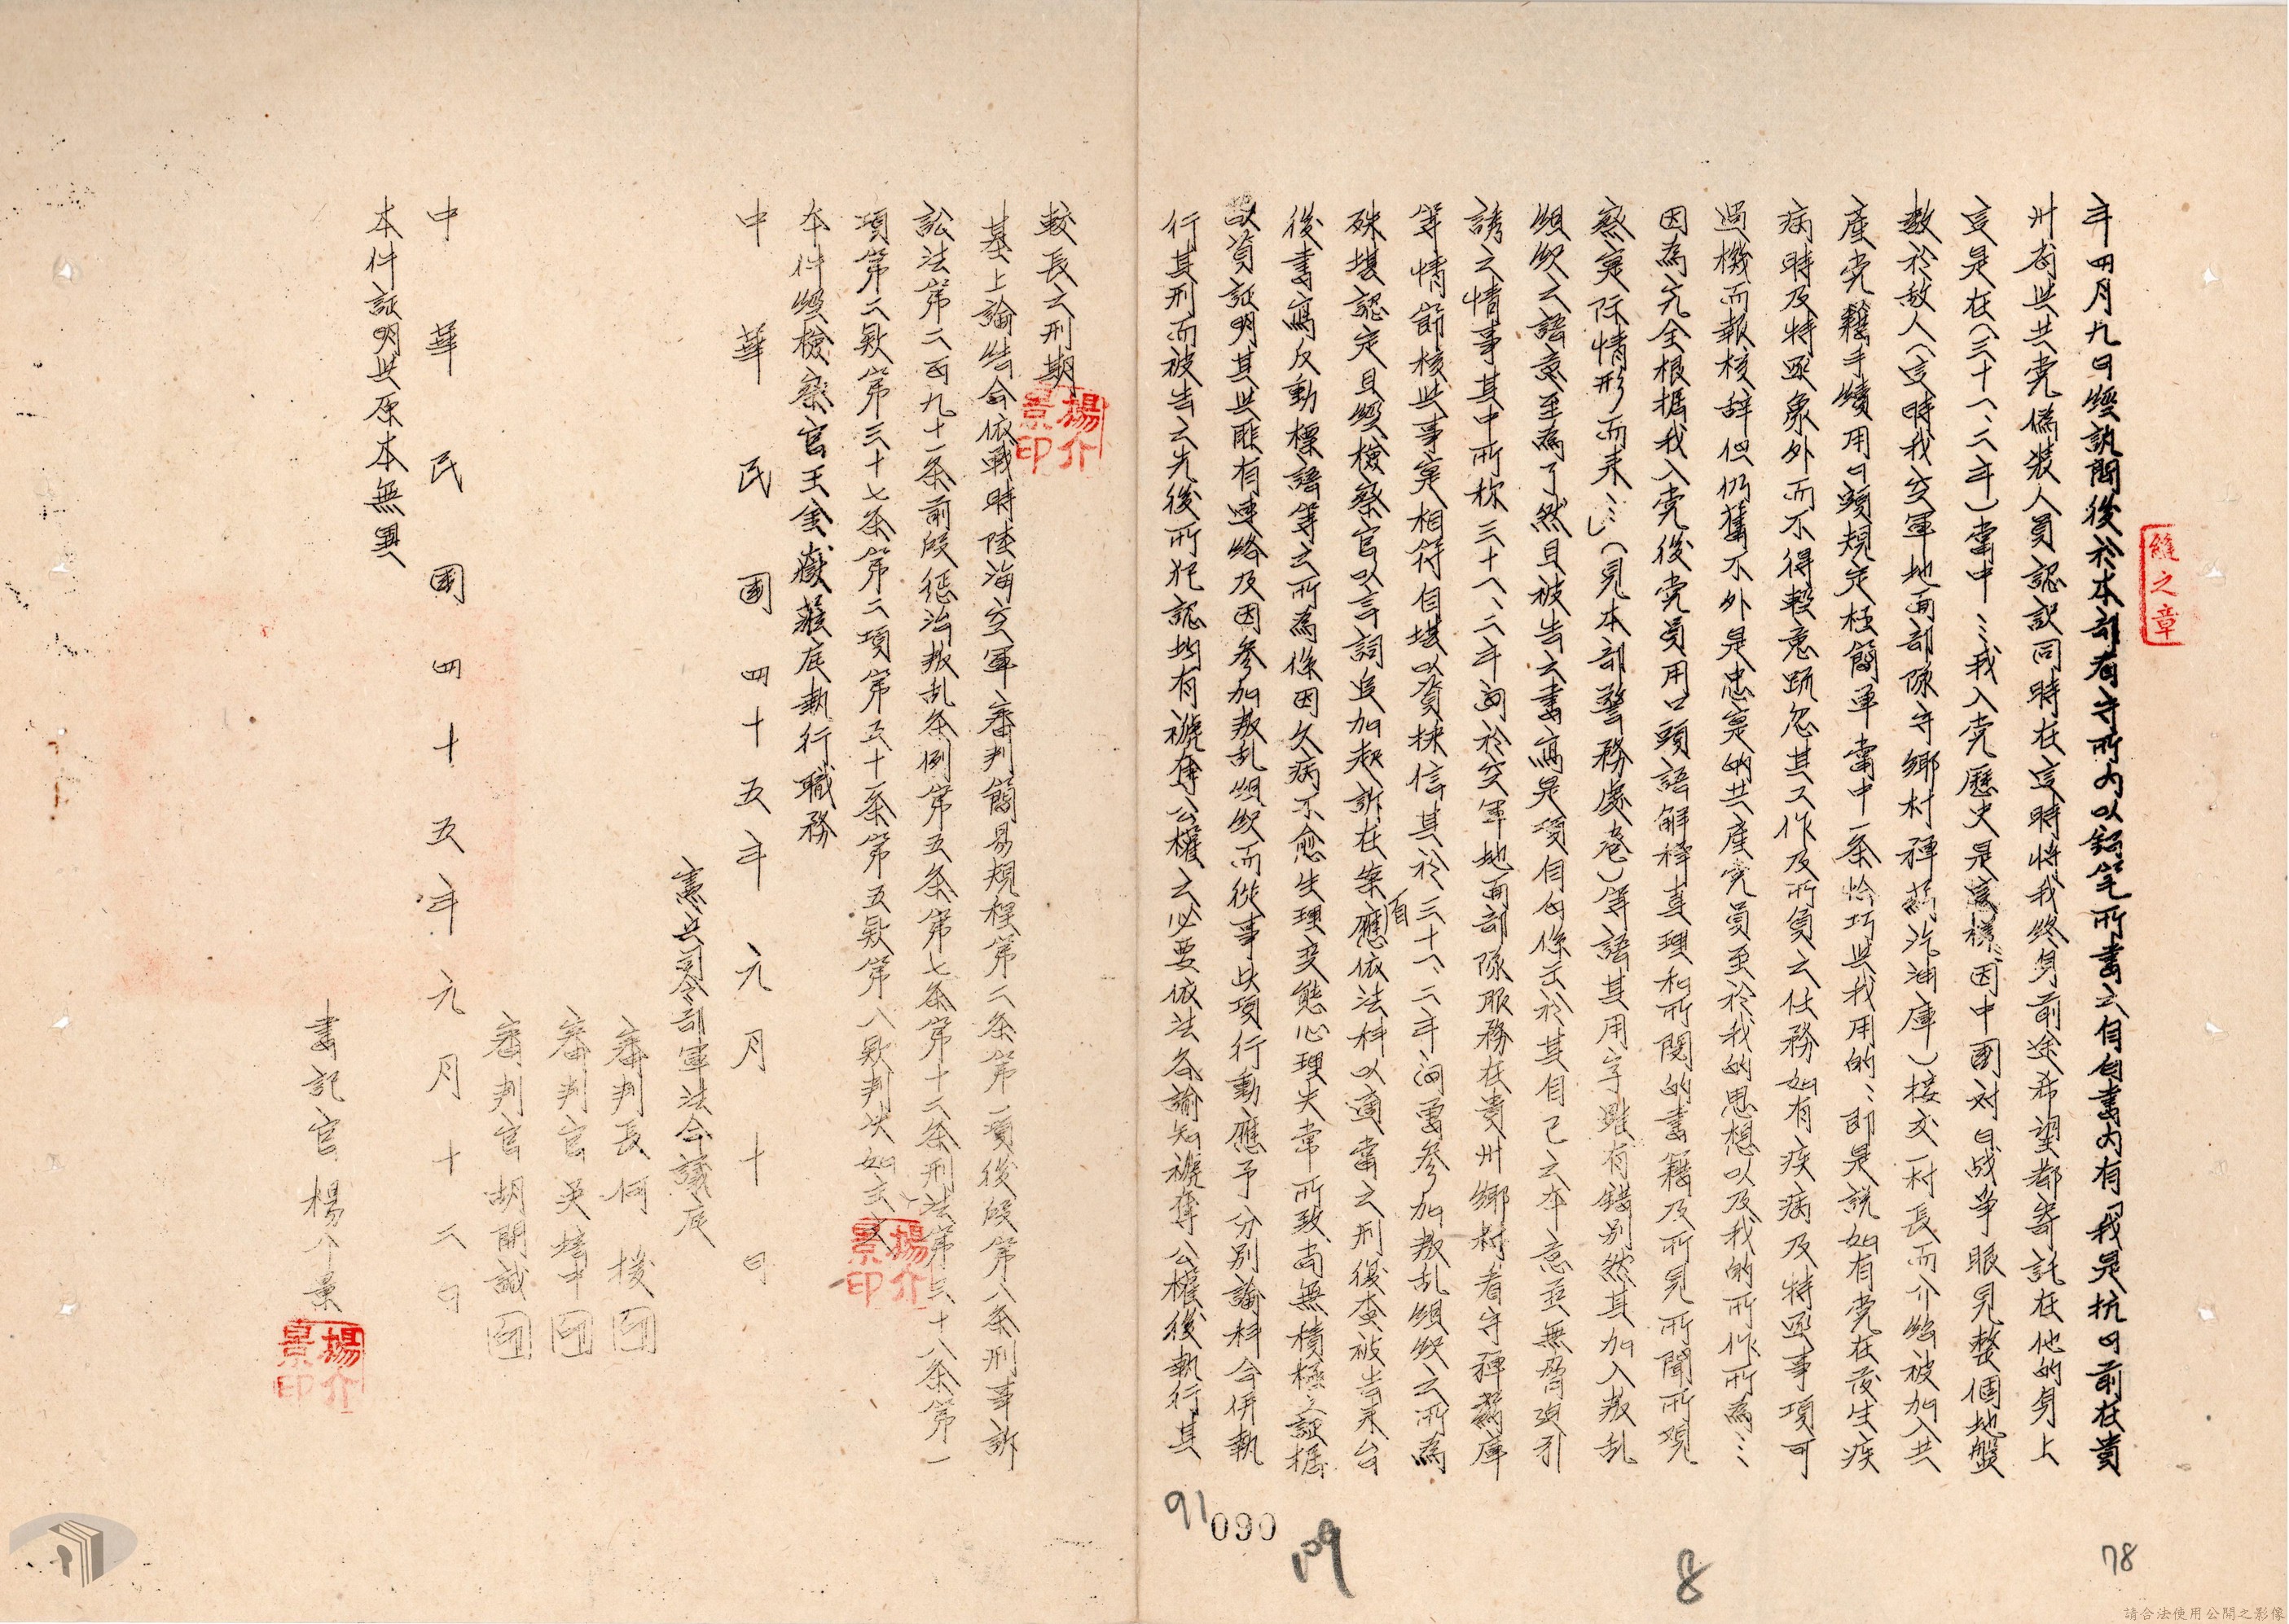 年四月九日經訊問後於本部看守所內以鉛笔所書之自白書內有「我是抗日前在貴
州省与共党偽裝人員認識同時在這時将我終身前途希望都寄託在他的身上
這是在(三十一、二年)當中…我入党歷史是這樣…因中國对日战争眼見整個地盤
敗於敌人(這時我交軍地面部隊守鄉村禅葯汽油庫)接交一村長而介紹被加入共
產党籍手續用口頭規定极簡单當中一条恰巧与我用的…即是説如有党在發生疾
病時及特逐象外而不得輕意疏忽其工作及所負之任務如有疾病及特逐事項可
過機而報核辞但仍舊不外是忠寔的共產党員至於我的思想以及我的所作所為…
因為完全根据我入党後党員用口頭語解釋真理和所閱的書籍及所見所聞所观
察寔际情形而来…」(見本部警務處卷)等語其用字雖有錯別然其加入叛乱
組织之語意至為了然且被告之書寫是項自白係出於其自己之本意並無脅迫引
誘之情事其中所称三十一、二年間於空軍地面部隊服務在貴州鄉村看守禅葯庫
等情節核与事寔相符自堪以資採信其於三十一、二年間曾参加叛乱組织之所為
殊堪認定且經檢察官以言詞追加起訴在案自應依法科以適當之刑後查被告来台
後書寫反動標語等之所為係因久病不愈生理变態心理失常所致尚無積極之証据
以資証明其与匪有連絡及因参加叛乱組织而從事此項行動應予分別論科合併執
行其刑而被告之先後所犯認均有褫奪公權之必要依法各諭知褫奪公權後執行其
縫之章
91
090
109
8
78
較長之刑期
楊介景印
基上論结合依戰時陸海空軍審判簡易規程第二条第一項後段第八条刑事訴
訟法第二百九十一条前段惩治叛乱条例第五条第七条第十二条刑法第三十八条第一
項第二款第三十七条第二項第五十一条第五款第八款判决如主文
楊介景印
本件經檢察官王金嶽蒞庭執行職務
中華民國四十五年元月十日
憲兵司令部軍法会議庭
審判長何 授 印
審判官吳境中 印
審判官胡開誠 印
中華民國四十五年元月十二日
本件証明与原本無異
書記官楊介景
楊介景印
請合法使用公開之影像